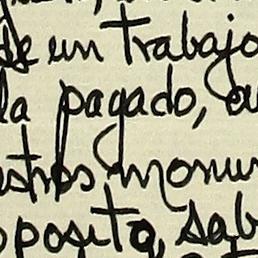 de un trabajo
la pagado, ou
estros monum
posito, sab